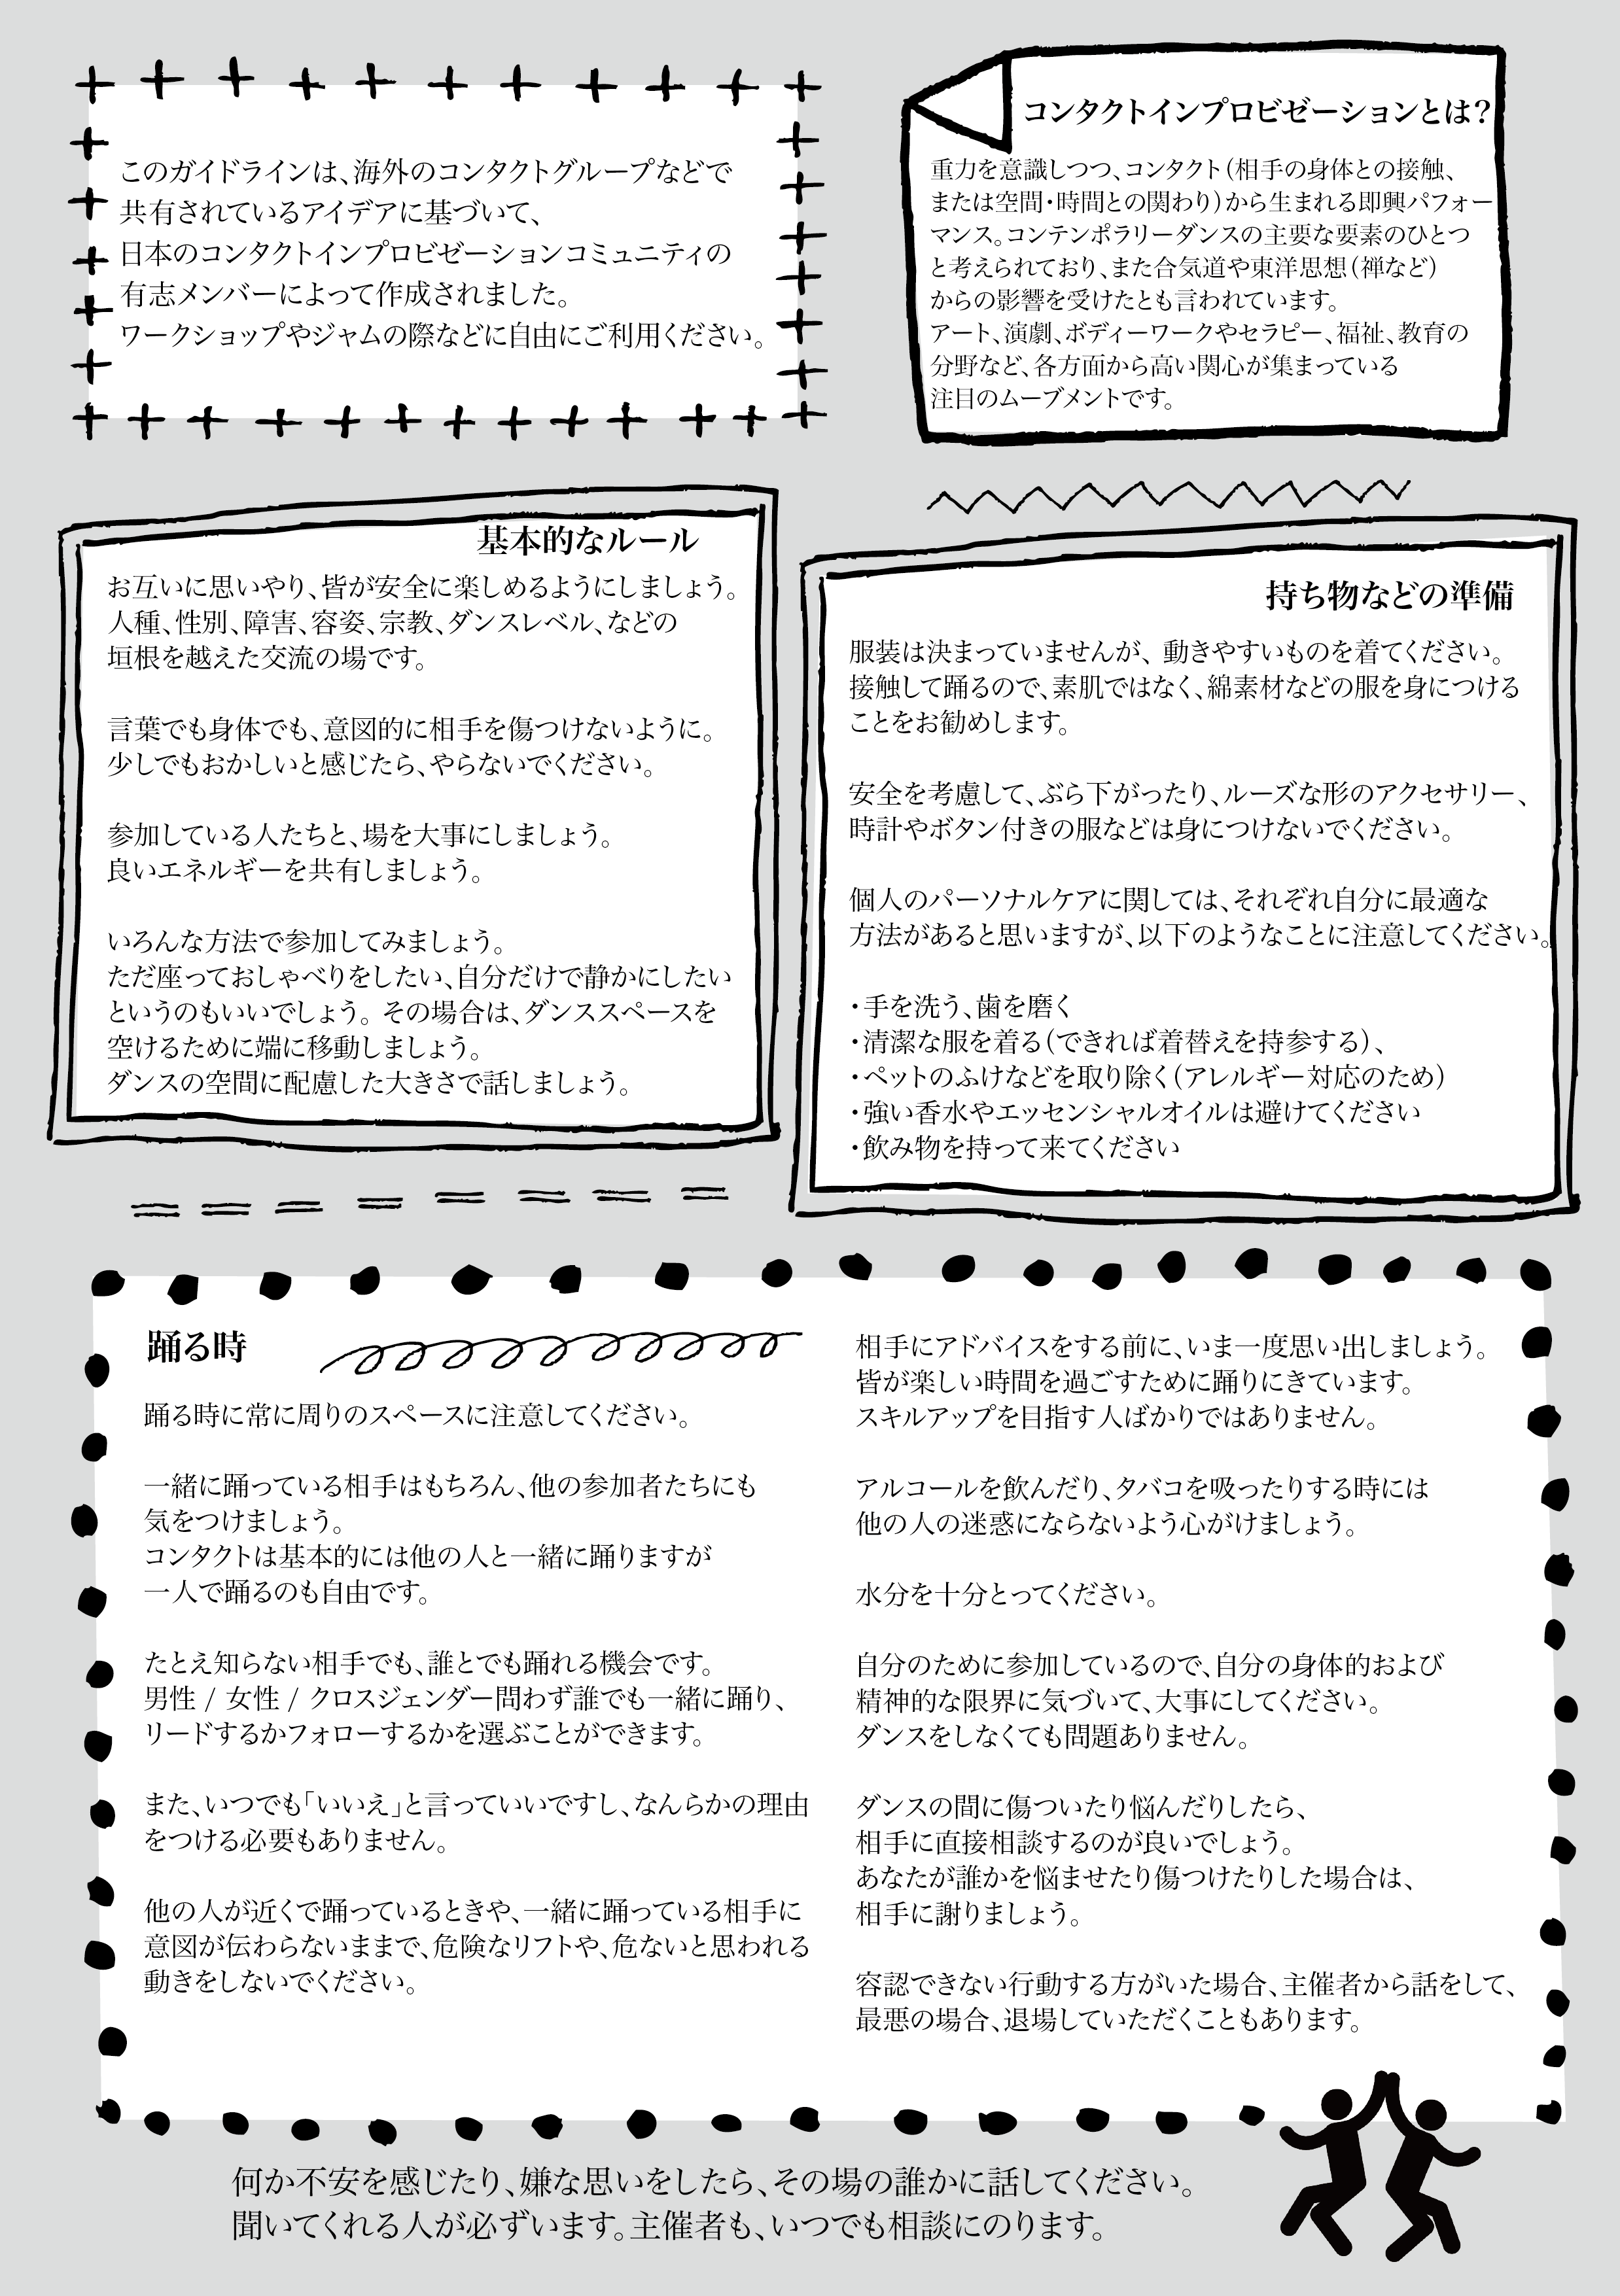 このガイドラインは、海外のコンタクトグループなどで
共有されているアイデアに基づいて、
日本のコンタクトインプロビゼーションコミュニティの
有志メンバーによって作成されました。
ワークショップやジャムの際などに自由にご利用ください。
コンタクトインプロビゼーションとは?
重力を意識しつつ、コンタクト(相手の身体との接触、
または空間・時間との関わり)から生まれる即興パフォー
マンス。コンテンポラリーダンスの主要な要素のひとつ
と考えられており、また合気道や東洋思想(禅など)
からの影響を受けたとも言われています。
アート、演劇、ボディーワークやセラピー、福祉、教育の
分野など、各方面から高い関心が集まっている
注目のムーブメントです。
基本的なルール
お互いに思いやり、皆が安全に楽しめるようにしましょう。
人種、性別、障害、容姿、宗教、ダンスレベル、などの
垣根を越えた交流の場です。
言葉でも身体でも、意図的に相手を傷つけないように。
少しでもおかしいと感じたら、やらないでください。
参加している人たちと、場を大事にしましょう。
良いエネルギーを共有しましょう。
いろんな方法で参加してみましょう。
ただ座っておしゃべりをしたい、自分だけで静かにしたい
というのもいいでしょう。その場合は、ダンススペースを
空けるために端に移動しましょう。
ダンスの空間に配慮した大きさで話しましょう。
持ち物などの準備
服装は決まっていませんが、動きやすいものを着てください。
接触して踊るので、素肌ではなく、綿素材などの服を身につける
ことをお勧めします。
安全を考慮して、ぶら下がったり、ルーズな形のアクセサリー、
時計やボタン付きの服などは身につけないでください。
個人のパーソナルケアに関しては、それぞれ自分に最適な
方法があると思いますが、以下のようなことに注意してください。
・手を洗う、歯を磨く
・清潔な服を着る(できれば着替えを持参する)、
・ペットのふけなどを取り除く(アレルギー対応のため)
・強い香水やエッセンシャルオイルは避けてください
・飲み物を持って来てください
踊る時
踊る時に常に周りのスペースに注意してください。
一緒に踊っている相手はもちろん、他の参加者たちにも
気をつけましょう。
コンタクトは基本的には他の人と一緒に踊りますが
一人で踊るのも自由です。
たとえ知らない相手でも、誰とでも踊れる機会です。
男性 / 女性 / クロスジェンダー問わず誰でも一緒に踊り、
リードするかフォローするかを選ぶことができます。
また、いつでも「いいえ」と言っていいですし、なんらかの理由
をつける必要もありません。
他の人が近くで踊っているときや、一緒に踊っている相手に
意図が伝わらないままで、危険なリフトや、危ないと思われる
動きをしないでください。
相手にアドバイスをする前に、いま一度思い出しましょう。
皆が楽しい時間を過ごすために踊りにきています。
スキルアップを目指す人ばかりではありません。
アルコールを飲んだり、タバコを吸ったりする時には
他の人の迷惑にならないよう心がけましょう。
水分を十分とってください。
自分のために参加しているので、自分の身体的および
精神的な限界に気づいて、大事にしてください。
ダンスをしなくても問題ありません。
ダンスの間に傷ついたり悩んだりしたら、
相手に直接相談するのが良いでしょう。
あなたが誰かを悩ませたり傷つけたりした場合は、
相手に謝りましょう。
容認できない行動する方がいた場合、主催者から話をして、
最悪の場合、退場していただくこともあります。
何か不安を感じたり、嫌な思いをしたら、その場の誰かに話してください。
聞いてくれる人が必ずいます。主催者も、いつでも相談にのります。